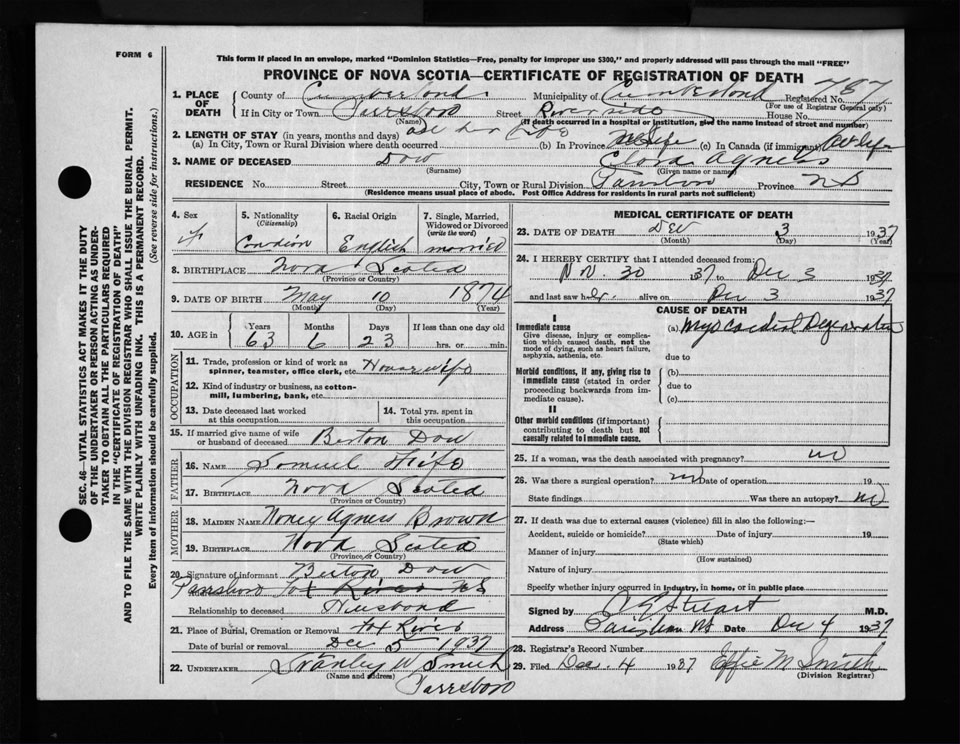 FORM 6
This form if placed in an envelope, marked "Dominion Statistics—Free, penalty for improper use $300," and properly addressed will pass through the mail "FREE"
PROVINCE OF NOVA SCOTIA—CERTIFICATE OF REGISTRATION OF DEATH
1. PLACE OF DEATH County of Cumberland Municipality of Cumberland Registered No. 787
(For use of Registrar General only)
If in City or Town Parrsboro Street House No.
(Name) (If death occurred in a hospital or institution, give the name instead of street and number)
2. LENGTH OF STAY (in years, months and days)
(a) In City, Town or Rural Division where death occurred all her life (b) In Province (c) In Canada (if immigrant) all life
3. NAME OF DECEASED Dow Clara Agness
(Surname) (Given name or names)
RESIDENCE No. Street City, Town or Rural Division Province NS
(Residence means usual place of abode. Post Office Address for residents in rural parts not sufficient)
4. Sex F
5. Nationality (Citizenship) Canadian
6. Racial Origin English
7. Single, Married, Widowed or Divorced (write the word) married
8. BIRTHPLACE Nova Scotia
(Province or Country)
9. DATE OF BIRTH May 10 1874
(Month) (Day) (Year)
10. AGE in Years 63 Months 6 Days 23 If less than one day old hrs. or min.
OCCUPATION
11. Trade, profession or kind of work as spinner, teamster, office clerk, etc. Housewife
12. Kind of industry or business, as cotton-mill, lumbering, bank, etc.
13. Date deceased last worked at this occupation
14. Total yrs. spent in this occupation
15. If married give name of wife or husband of deceased Berton Dow
FATHER
16. NAME Samuel Fife
17. BIRTHPLACE Nova Scotia
(Province or Country)
MOTHER
18. MAIDEN NAME Nancy Agness Brown
19. BIRTHPLACE Nova Scotia
(Province or Country)
20. Signature of informant Berton Dow
Parrsboro Fox River NS
Relationship to deceased Husband
21. Place of Burial, Cremation or Removal Fox River
Date of burial or removal Dec 5 1937
22. UNDERTAKER Stanley W Smith
(Name and address)
Parrsboro
MEDICAL CERTIFICATE OF DEATH
23. DATE OF DEATH Dec 3 1937
(Month) (Day) (Year)
24. I HEREBY CERTIFY that I attended deceased from:
Nov. 30 37 to Dec 3 1937
and last saw her alive on Dec 3 1937
CAUSE OF DEATH
I
Immediate cause (a) Myocardial Degeneration
Give disease, injury or complication which caused death, not the mode of dying, such as heart failure, asphyxia, asthenia, etc. due to
Morbid conditions, if any, giving rise to immediate cause (stated in order proceeding backwards from immediate cause). (b)
due to
(c)
II
Other morbid conditions (if important) contributing to death but not causally related to immediate cause.
25. If a woman, was the death associated with pregnancy? no
26. Was there a surgical operation? no Date of operation 19
State findings Was there an autopsy? no
27. If death was due to external causes (violence) fill in also the following:—
Accident, suicide or homicide? Date of injury 19
(State which)
Manner of injury
(How sustained)
Nature of injury
Specify whether injury occurred in industry, in home, or in public place
Signed by Stuart M.D.
Address Date Dec 4 1937
28. Registrar's Record Number
29. Filed Dec. 4 1937 Effie M Smith
(Division Registrar)
SEC. 46—VITAL STATISTICS ACT MAKES IT THE DUTY
OF THE UNDERTAKER OR PERSON ACTING AS UNDER-
TAKER TO OBTAIN ALL THE PARTICULARS REQUIRED
IN THE "CERTIFICATE OF REGISTRATION OF DEATH"
AND TO FILE THE SAME WITH THE DIVISION REGISTRAR WHO SHALL ISSUE THE BURIAL PERMIT.
WRITE PLAINLY WITH UNFADING INK. THIS IS A PERMANENT RECORD.
Every item of information should be carefully supplied. (See reverse side for instructions.)